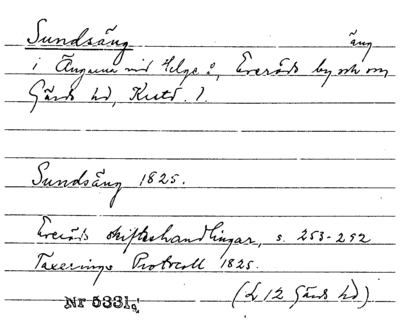 Sundsäng äng
i Ängarna vid Helge å, Everöds by och sn
Gärds hd, Krist. l.
Sundsäng 1825.
Everöds skifteshandlingar, s. 253-292
Taxerings Protocoll 1825.
Nr 5331 (L 12 Gärds hd)